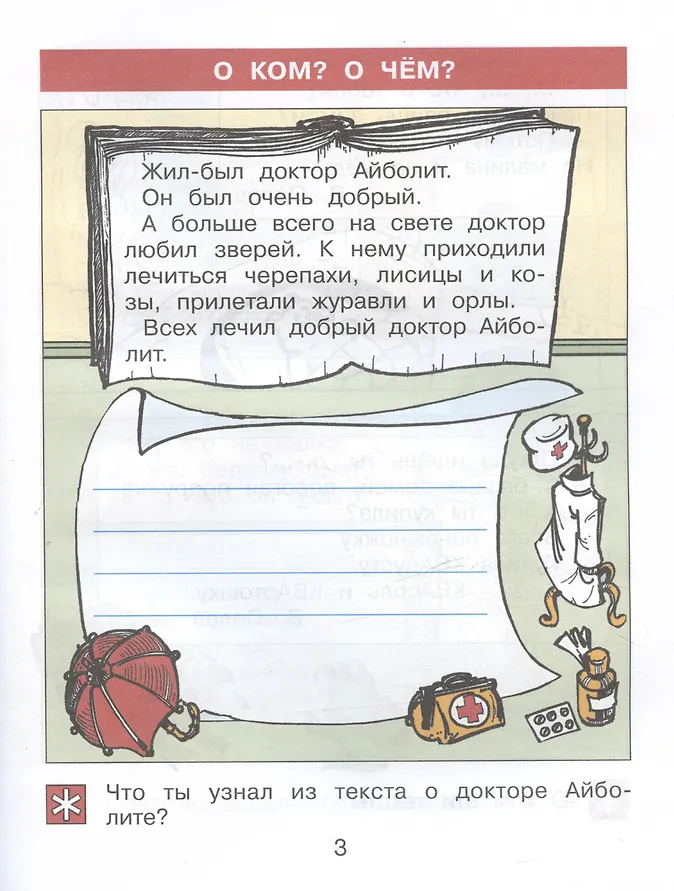 О КОМ? О ЧЁМ?
Жил-был доктор Айболит.
Он был очень добрый.
А больше всего на свете доктор
любил зверей. К нему приходили
лечиться черепахи, лисицы и ко-
зы, прилетали журавли и орлы.
Всех лечил добрый доктор Айбо-
лит.
Что ты узнал из текста о докторе Айбо-
лите?
3